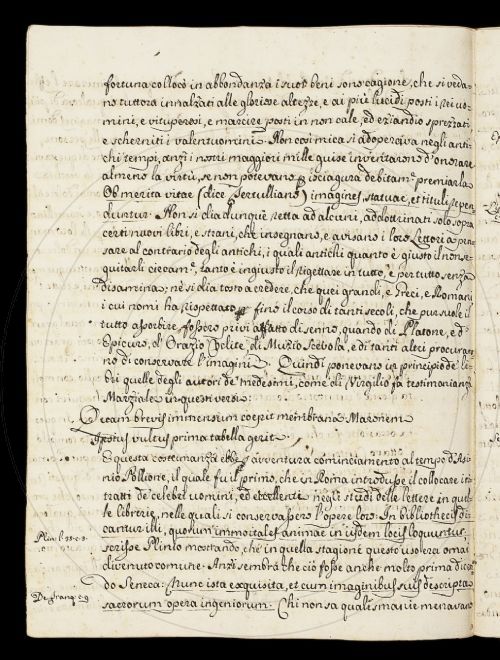 fortuna collocò in abbondanza i suoi beni sono cagione, che si veda-
no tuttora innalzati alle gloriose altezze, e ai più lucidi posti i rei uo-
mini, e vituperosi, e marcire posti in non cale, ed eziandio sprezzati
e scherniti i valentuomini. Non così mica si adoperava negli anti-
chi tempi, anzi i nostri maggiori mille guise inventarono d'onorare
almeno la virtù, se non potevano p isciagura debitam.e premiarla
Ob merita vitae (dice Tertulliano) imagines, statuae, et tituli repen
duntur. Non si dia dunque retta ad alcuni, addottrinati solo sopra
certi nuovi libri, e strani, che insegnano, e avisano i loro Lettori a pen
sare al contrario degli antichi, i quali antichi quanto è giusto il non se-
quitarli ciecam.e, tanto è ingiusto il rigettare in tutto, e per tutto senza
disamina, nè si dia tosto a credere, che quei grandi, e Greci, e Romani
i cui nomi ha rispettato fino il corso di tanti secoli, che pur suole il
tutto assorbire, fossero privi affatto di senno, quando di Platone, e d'
Epicuro, d' Orazio Coclite, di Muzio Scevola, e di tanti altri procurar
no di conservare l'imagini. Quindi ponevano in principio de' li-
bri quelle degli autori de' medesimi, come di Virgilio fa testimonianza
Marziale in questi versi.
Quam brevis immensum coepit membrana Maronem
Ipsius vultus prima tabella gerit.
E questa costumanza ebbe p avventura cominciamento al tempo d'Asi-
nio Pollione, il quale fu il primo, che in Roma introdusse il collocare i ri
tratti de' celebri uomini, ed eccellenti negli studi delle lettere in quel-
le librerie, nelle quali si conservassero l'opere loro: In bibliothecis di-
cantur illi, quorum immortales animae in iisdem locis loquuntur
Plin. l. 35. c. 2.
scrisse Plinio mostrando, che in quella stagione questo uso era omai
divenuto comune. Anzi sembra che ciò fosse anche molto prima dicen
do Seneca: Nunc ista exquisita, et cum imaginibus suis descripta
De tranq. c. 9
sacrorum opera ingeniorum. Chi non sa quali smanie menavano